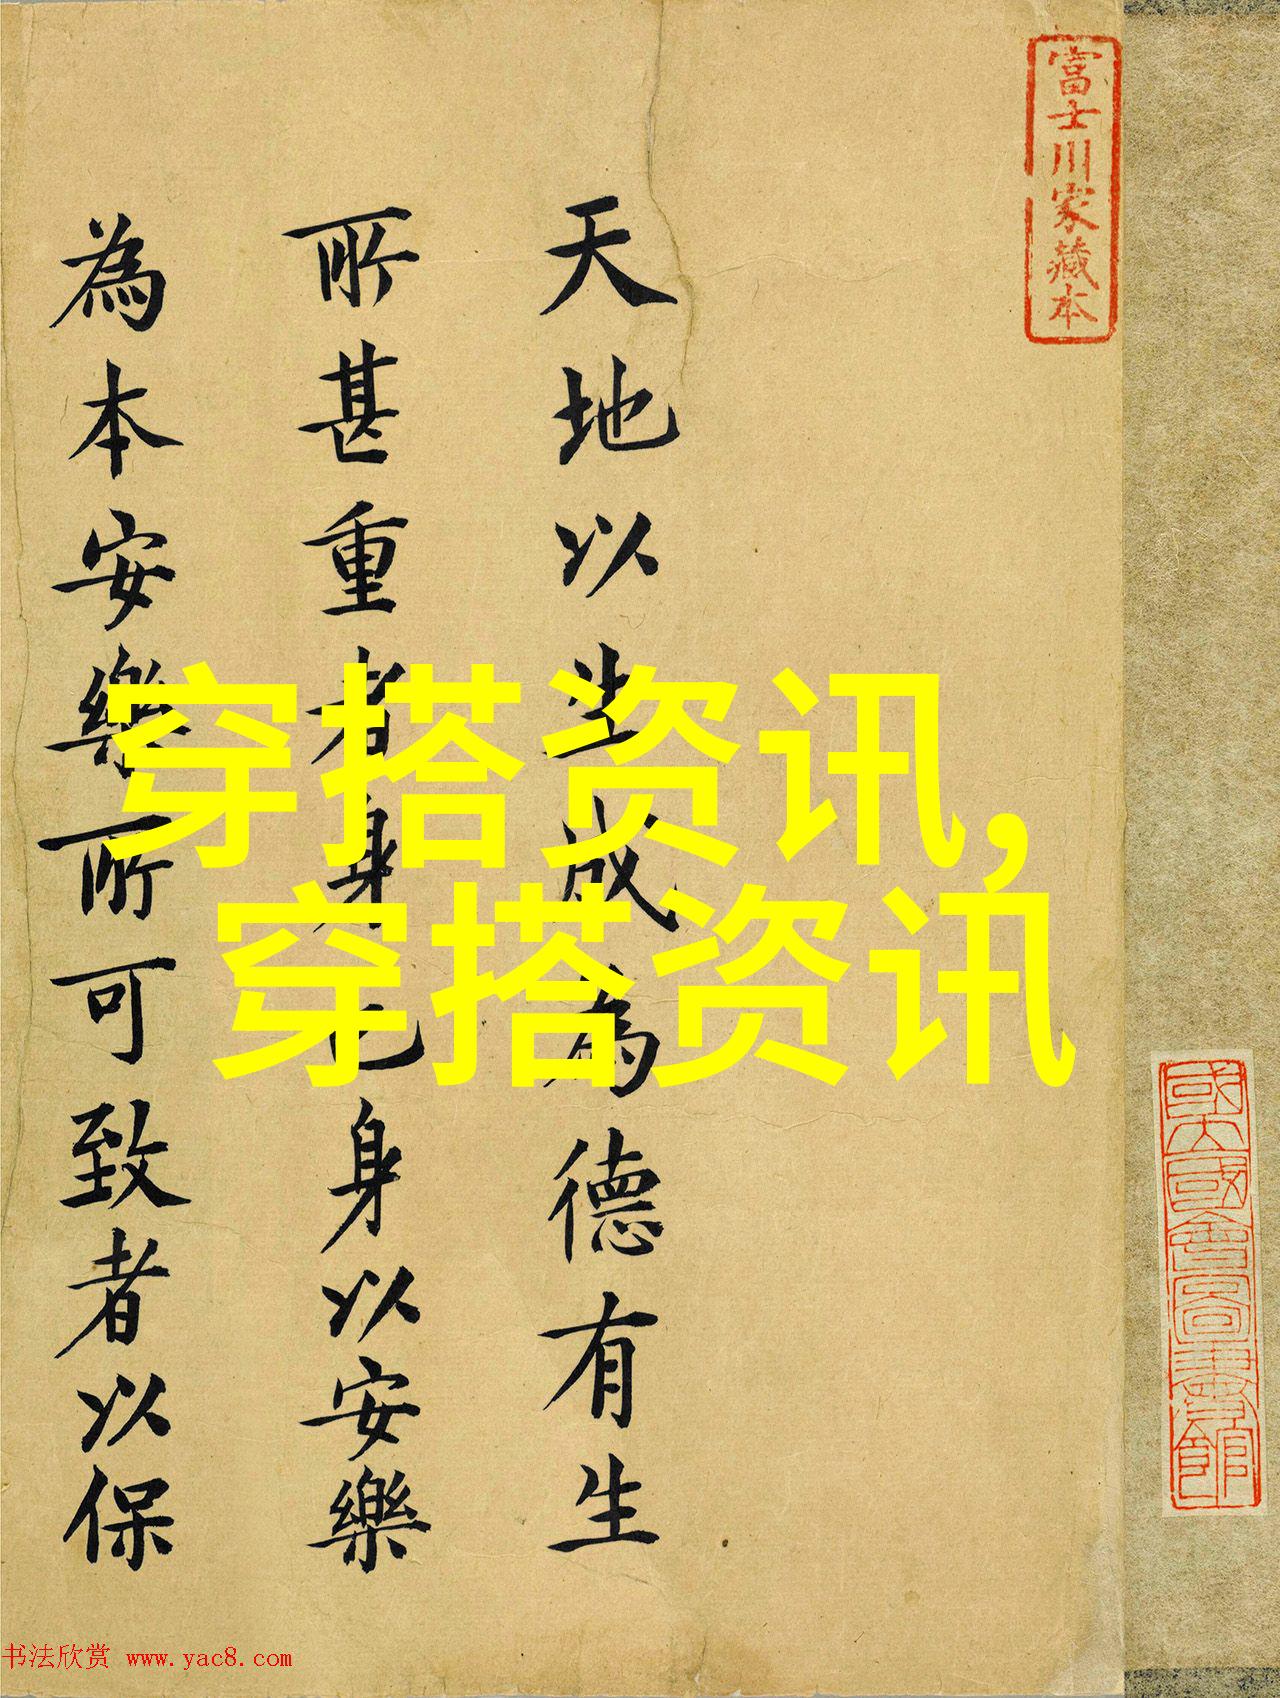 富士川家藏本
天地以生成為德有生
所甚重者身也身以安樂
為本安樂所可致者以保
穿搭资讯,
穿搭资讯
书法欣赏 www.yac8.com